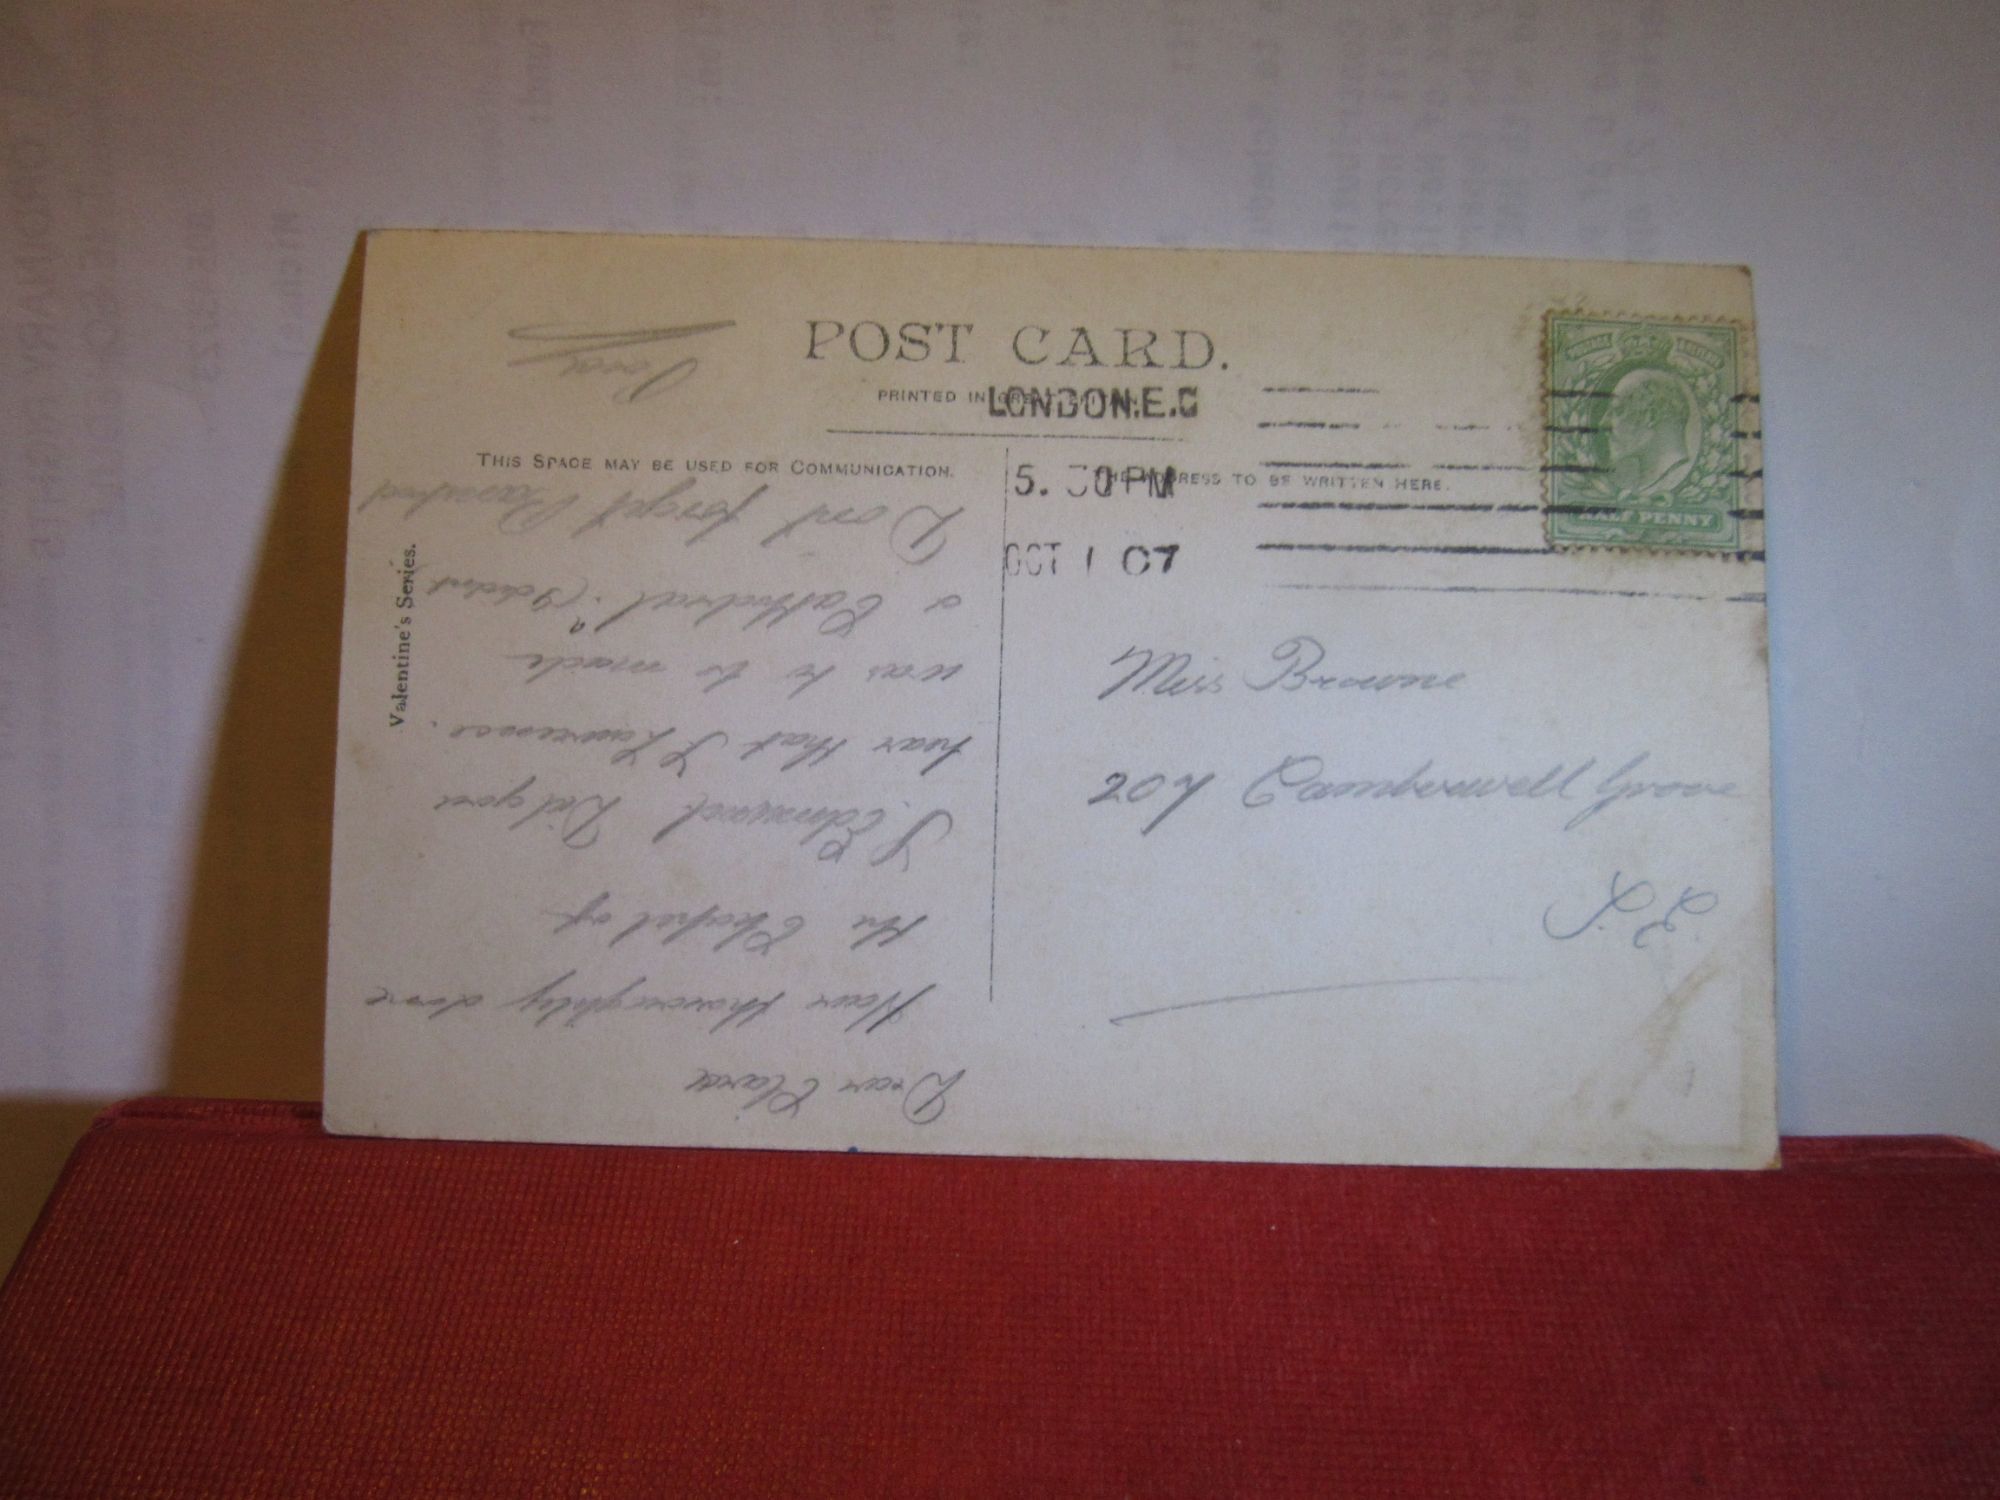 POST CARD.
PRINTED IN GREAT BRITAIN
LONDON.E.C
5. 30 PM
OCT 1 07
THIS SPACE MAY BE USED FOR COMMUNICATION.
THE ADDRESS TO BE WRITTEN HERE.
Valentine's Series.
HALF PENNY
Miss Browne
207 Camberwell Grove
S.E.
Dear Clara
Have thoroughly done
the Chapel of
S. Edmund. Did you
hear that S Lawrence.
was to be made
a Cathedral? (I didnt
Dont forget